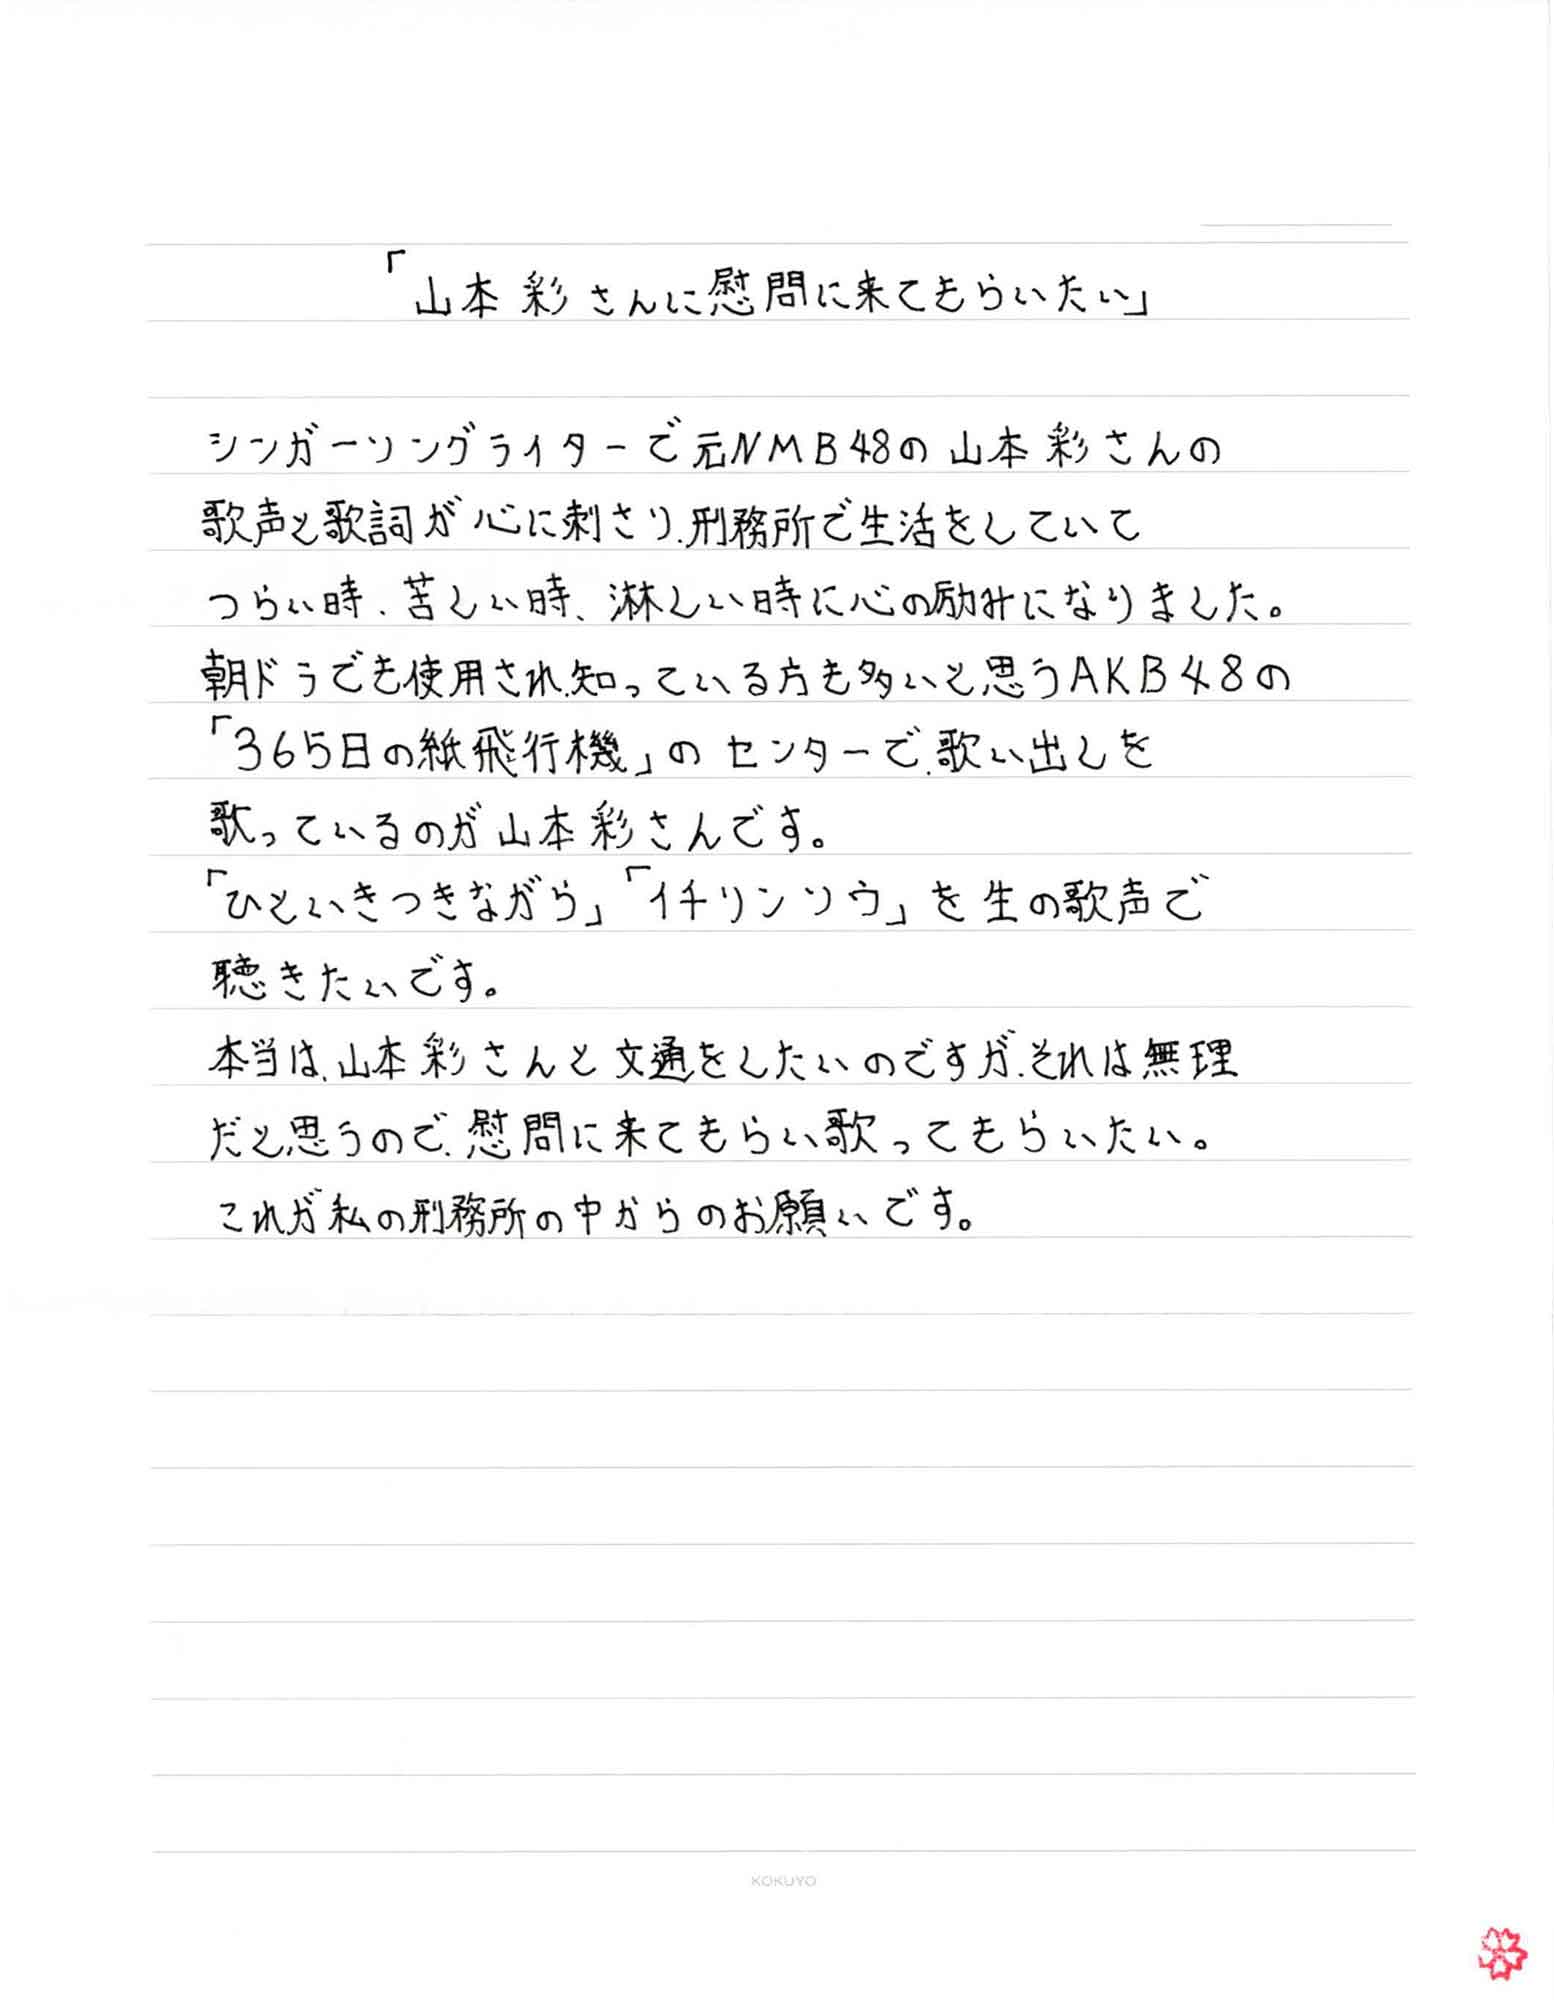 「山本 彩さんに慰問に来てもらいたい」
シンガーソングライターで元NMB48の山本 彩さんの
歌声と歌詞が心に刺さり、刑務所で生活をしていて
つらい時、苦しい時、淋しい時に心の励みになりました。
朝ドラでも使用され、知っている方も多いと思うAKB48の
「365日の紙飛行機」のセンターで、歌い出しを
歌っているのが山本 彩さんです。
「ひといきつきながら」「イチリンソウ」を生の歌声で
聴きたいです。
本当は、山本 彩さんと文通をしたいのですが、それは無理
だと思うので、慰問に来てもらい歌ってもらいたい。
これが私の刑務所の中からのお願いです。
KOKUYO